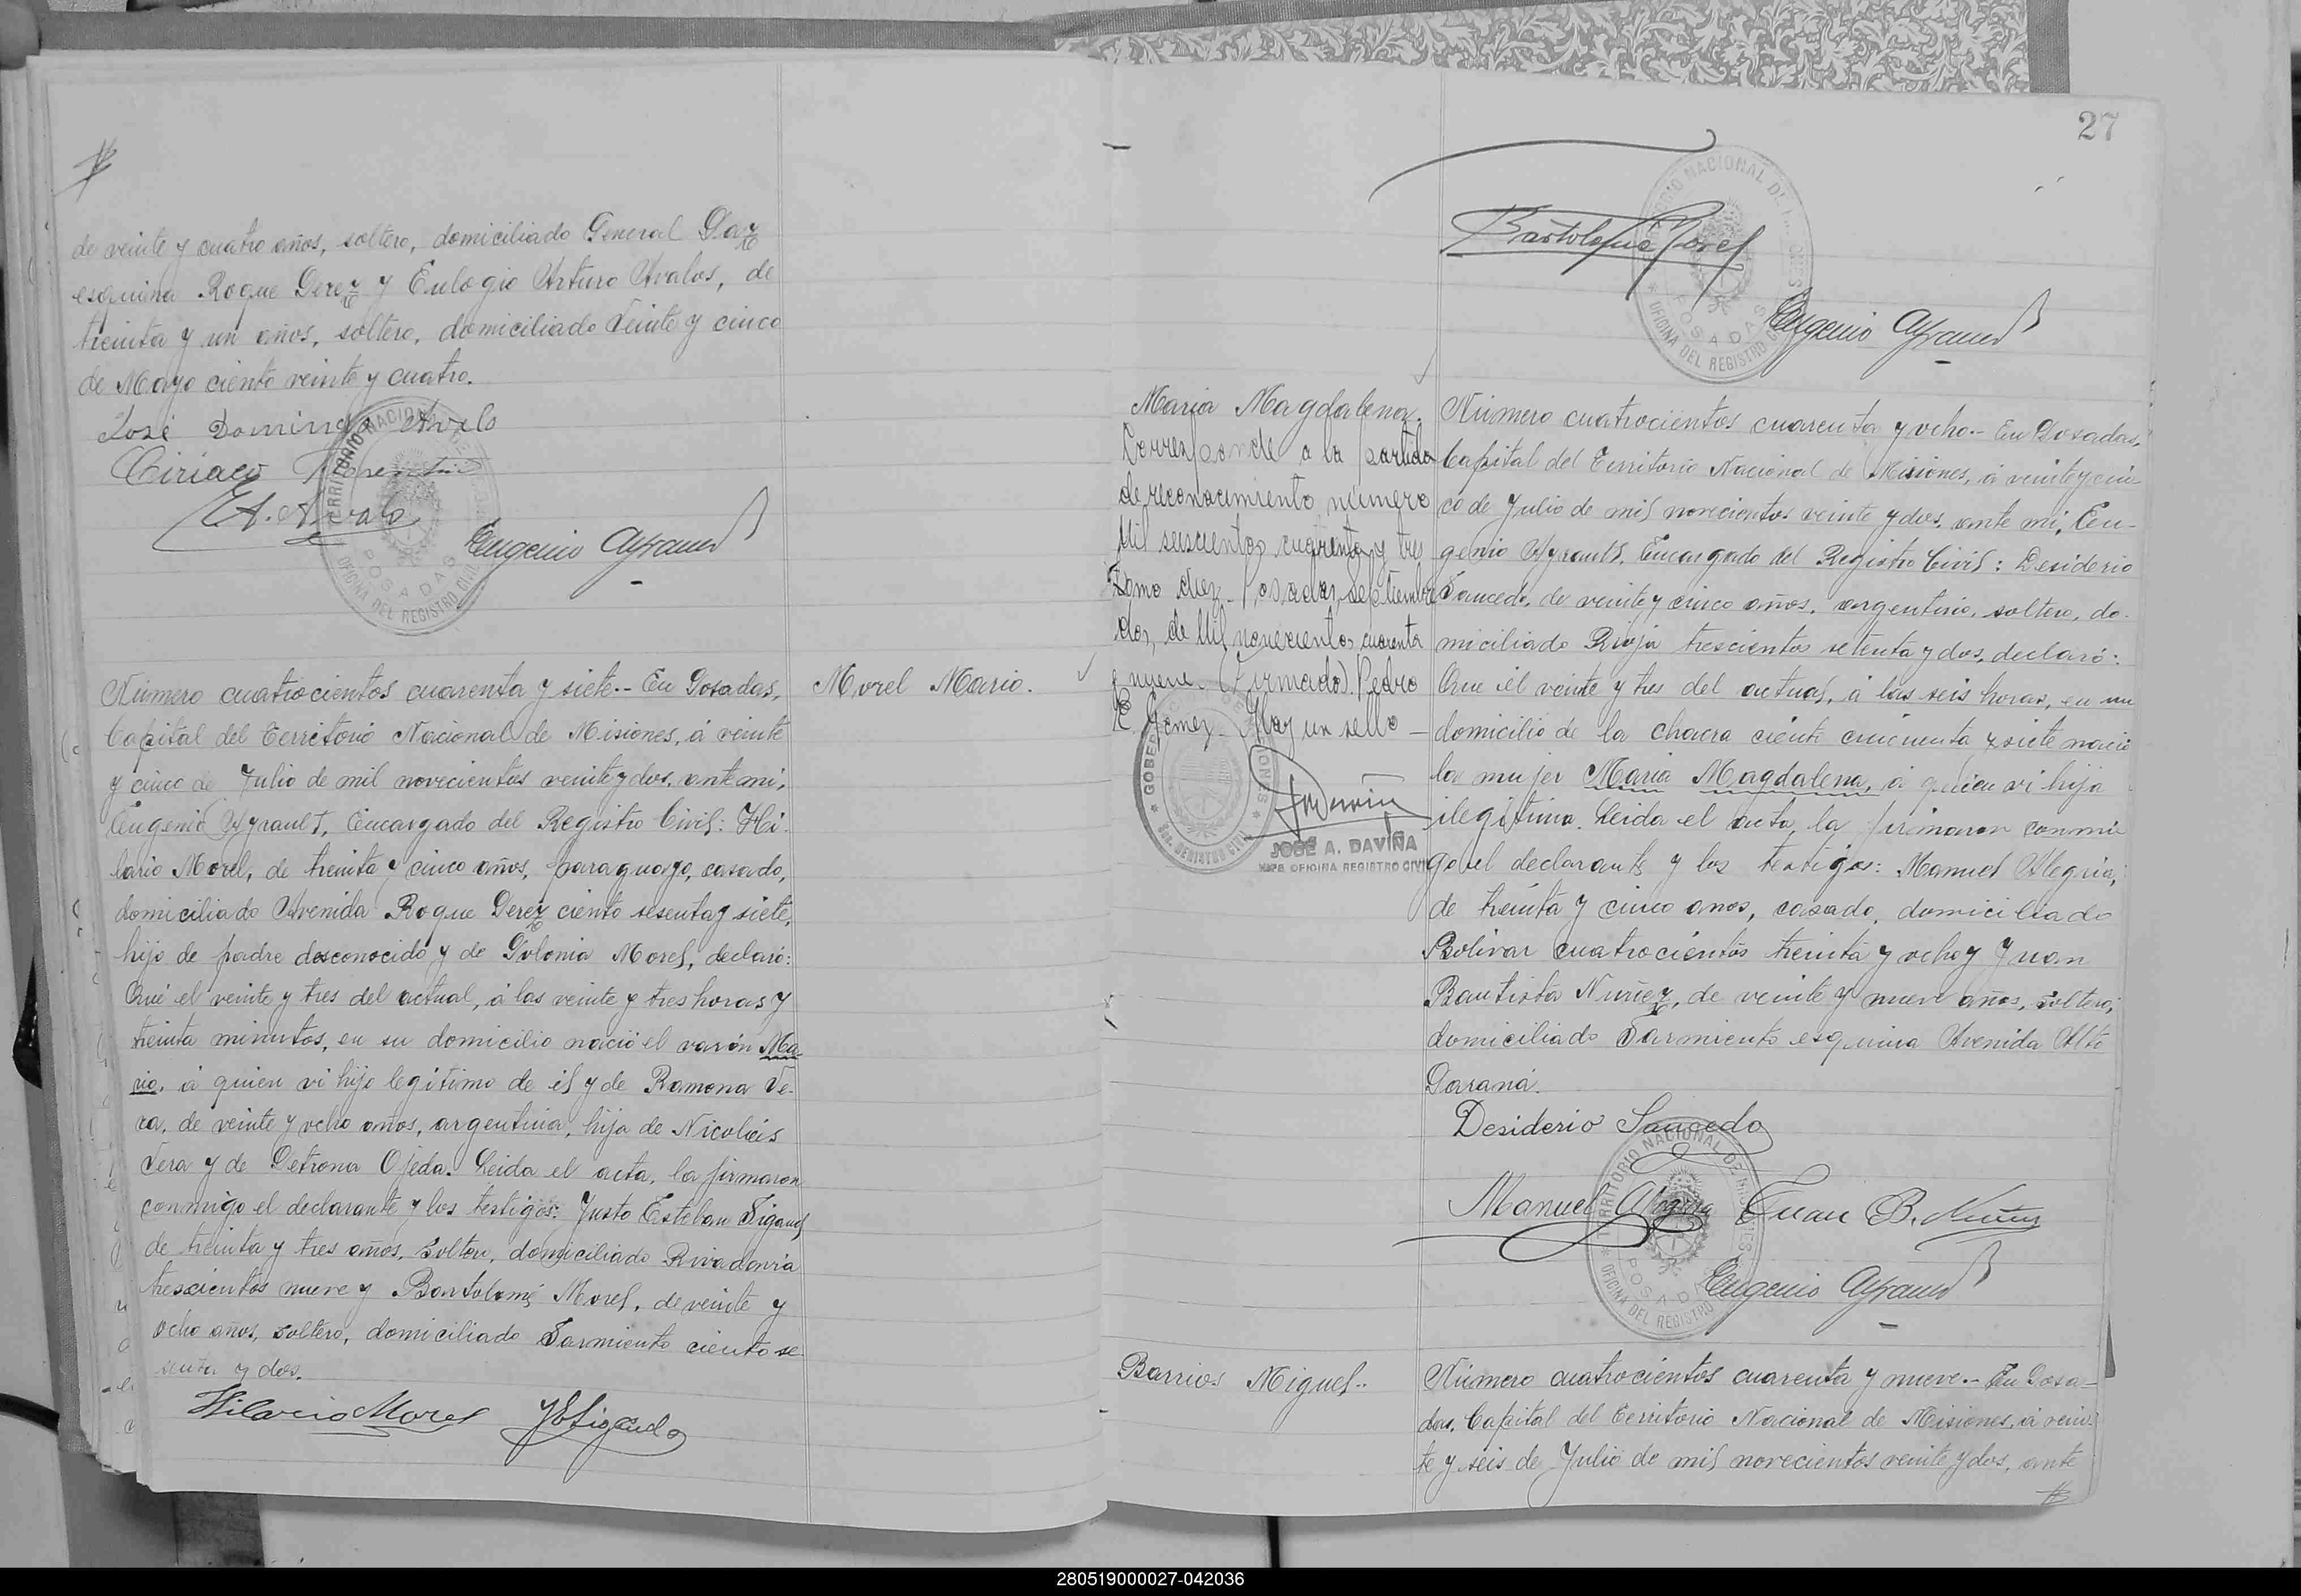 de veinte y cuatro años, soltero, domiciliado General Paz
esquina Roque Perez y Eulogio Arturo Avalos, de
treinta y un años, soltero, domiciliado Veinte y cinco
de Mayo ciento veinte y cuatro.
José Domingo Avalo
Ciriaco
E. A. Avalo
Eugenio Ayrault
TERRITORIO NACIONAL DE MISIONES
POSADAS
OFICINA DEL REGISTRO CIVIL
Morel Mario.
Número cuatrocientos cuarenta y siete.- En Posadas,
Capital del Territorio Nacional de Misiones, á veinte
y cinco de Julio de mil novecientos veinte y dos, ante mi,
Eugenio Ayrault, Encargado del Registro Civil: Hi-
lario Morel, de treinta y cinco años, paraguayo, casado,
domiciliado Avenida Roque Perez ciento sesenta y siete,
hijo de padre desconocido y de Polonia Morel, declaró:
Que el veinte y tres del actual, á las veinte y tres horas y
treinta minutos, en su domicilio nació el varón Ma-
rio, á quien vi hijo legítimo de él y de Ramona Ve-
ra, de veinte y ocho años, argentina, hija de Nicolás
Vera y de Petrona Ojeda. Leida el acta, la firmaron
conmigo el declarante y los testigos: Justo Esteban Sigaud
de treinta y tres años, soltero, domiciliado Rivadavia
trescientos nueve y Bartolomé Morel, de veinte y
ocho años, soltero, domiciliado Sarmiento ciento se-
senta y dos.
Hilario Morel J E Sigaud
27
Bartolomé Morel
Eugenio Ayrault
TERRITORIO NACIONAL DE MISIONES
POSADAS
OFICINA DEL REGISTRO CIVIL
Maria Magdalena.
Corresponde a la partida
de reconocimiento número
Mil seiscientos cuarenta y tres
Tomo diez - Posadas, Septiembre
dos, de Mil novecientos cuarenta
y nueve. (Firmado). Pedro
E. Gomez - Hay un sello -
JOSÉ A. DAVIÑA
JEFE OFICINA REGISTRO CIVIL
Número cuatrocientos cuarenta y ocho.- En Posadas,
Capital del Territorio Nacional de Misiones, á veinte y cin-
co de Julio de mil novecientos veinte y dos, ante mi, Eu-
genio Ayrault, Encargado del Registro Civil: Desiderio
Saucedo, de veinte y cinco años, argentino, soltero, do-
miciliado Rioja trescientos setenta y dos, declaró:
Que el veinte y tres del actual, á las seis horas, en un
domicilio de la chacra ciento cincuenta y siete nació
la mujer Maria Magdalena, á quien vi hija
ilegítima. Leida el acta, la firmaron conmi-
go el declarante y los testigos: Manuel Alegria,
de treinta y cinco años, casado, domiciliado
Bolivar cuatrocientos treinta y ocho y Juan
Bautista Nuñez, de veinte y nueve años, soltero,
domiciliado Sarmiento esquina Avenida Alto
Paraná.
Desiderio Saucedo
Manuel Alegria Juan B. Nuñez
Eugenio Ayrault
TERRITORIO NACIONAL DE MISIONES
POSADAS
OFICINA DEL REGISTRO
Barrios Miguel.-
Número cuatrocientos cuarenta y nueve.- En Posa-
das, Capital del Territorio Nacional de Misiones, á vein-
te y seis de Julio de mil novecientos veinte y dos, ante
280519000027-042036